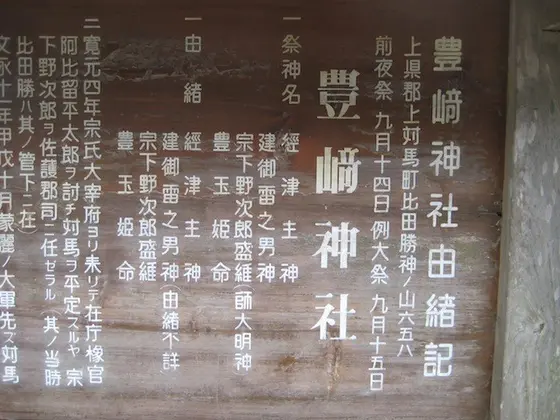 豊﨑神社由緒記
上県郡上対馬町比田勝神ノ山六五八
前夜祭 九月十四日 例大祭 九月十五日
豊﨑神社
一祭神名 經津主神
建御雷之男神
宗下野次郎盛雄(師大明神
豊玉姫命
一由緒 經津主神
建御雷之男神(由緒不詳
宗下野次郎盛雄
豊玉姫命
ニ寛元四年宗氏大宰府ヨリ来リテ在庁椽官
阿比留平太郎ヲ討チ対馬ヲ平定スルヤ 宗
下野次郎ヲ佐護郡司ニ任ゼラル 其ノ当時
比田勝ハ其ノ管下ニ在
文永十一年甲戊十月蒙麗ノ大軍先ズ対馬